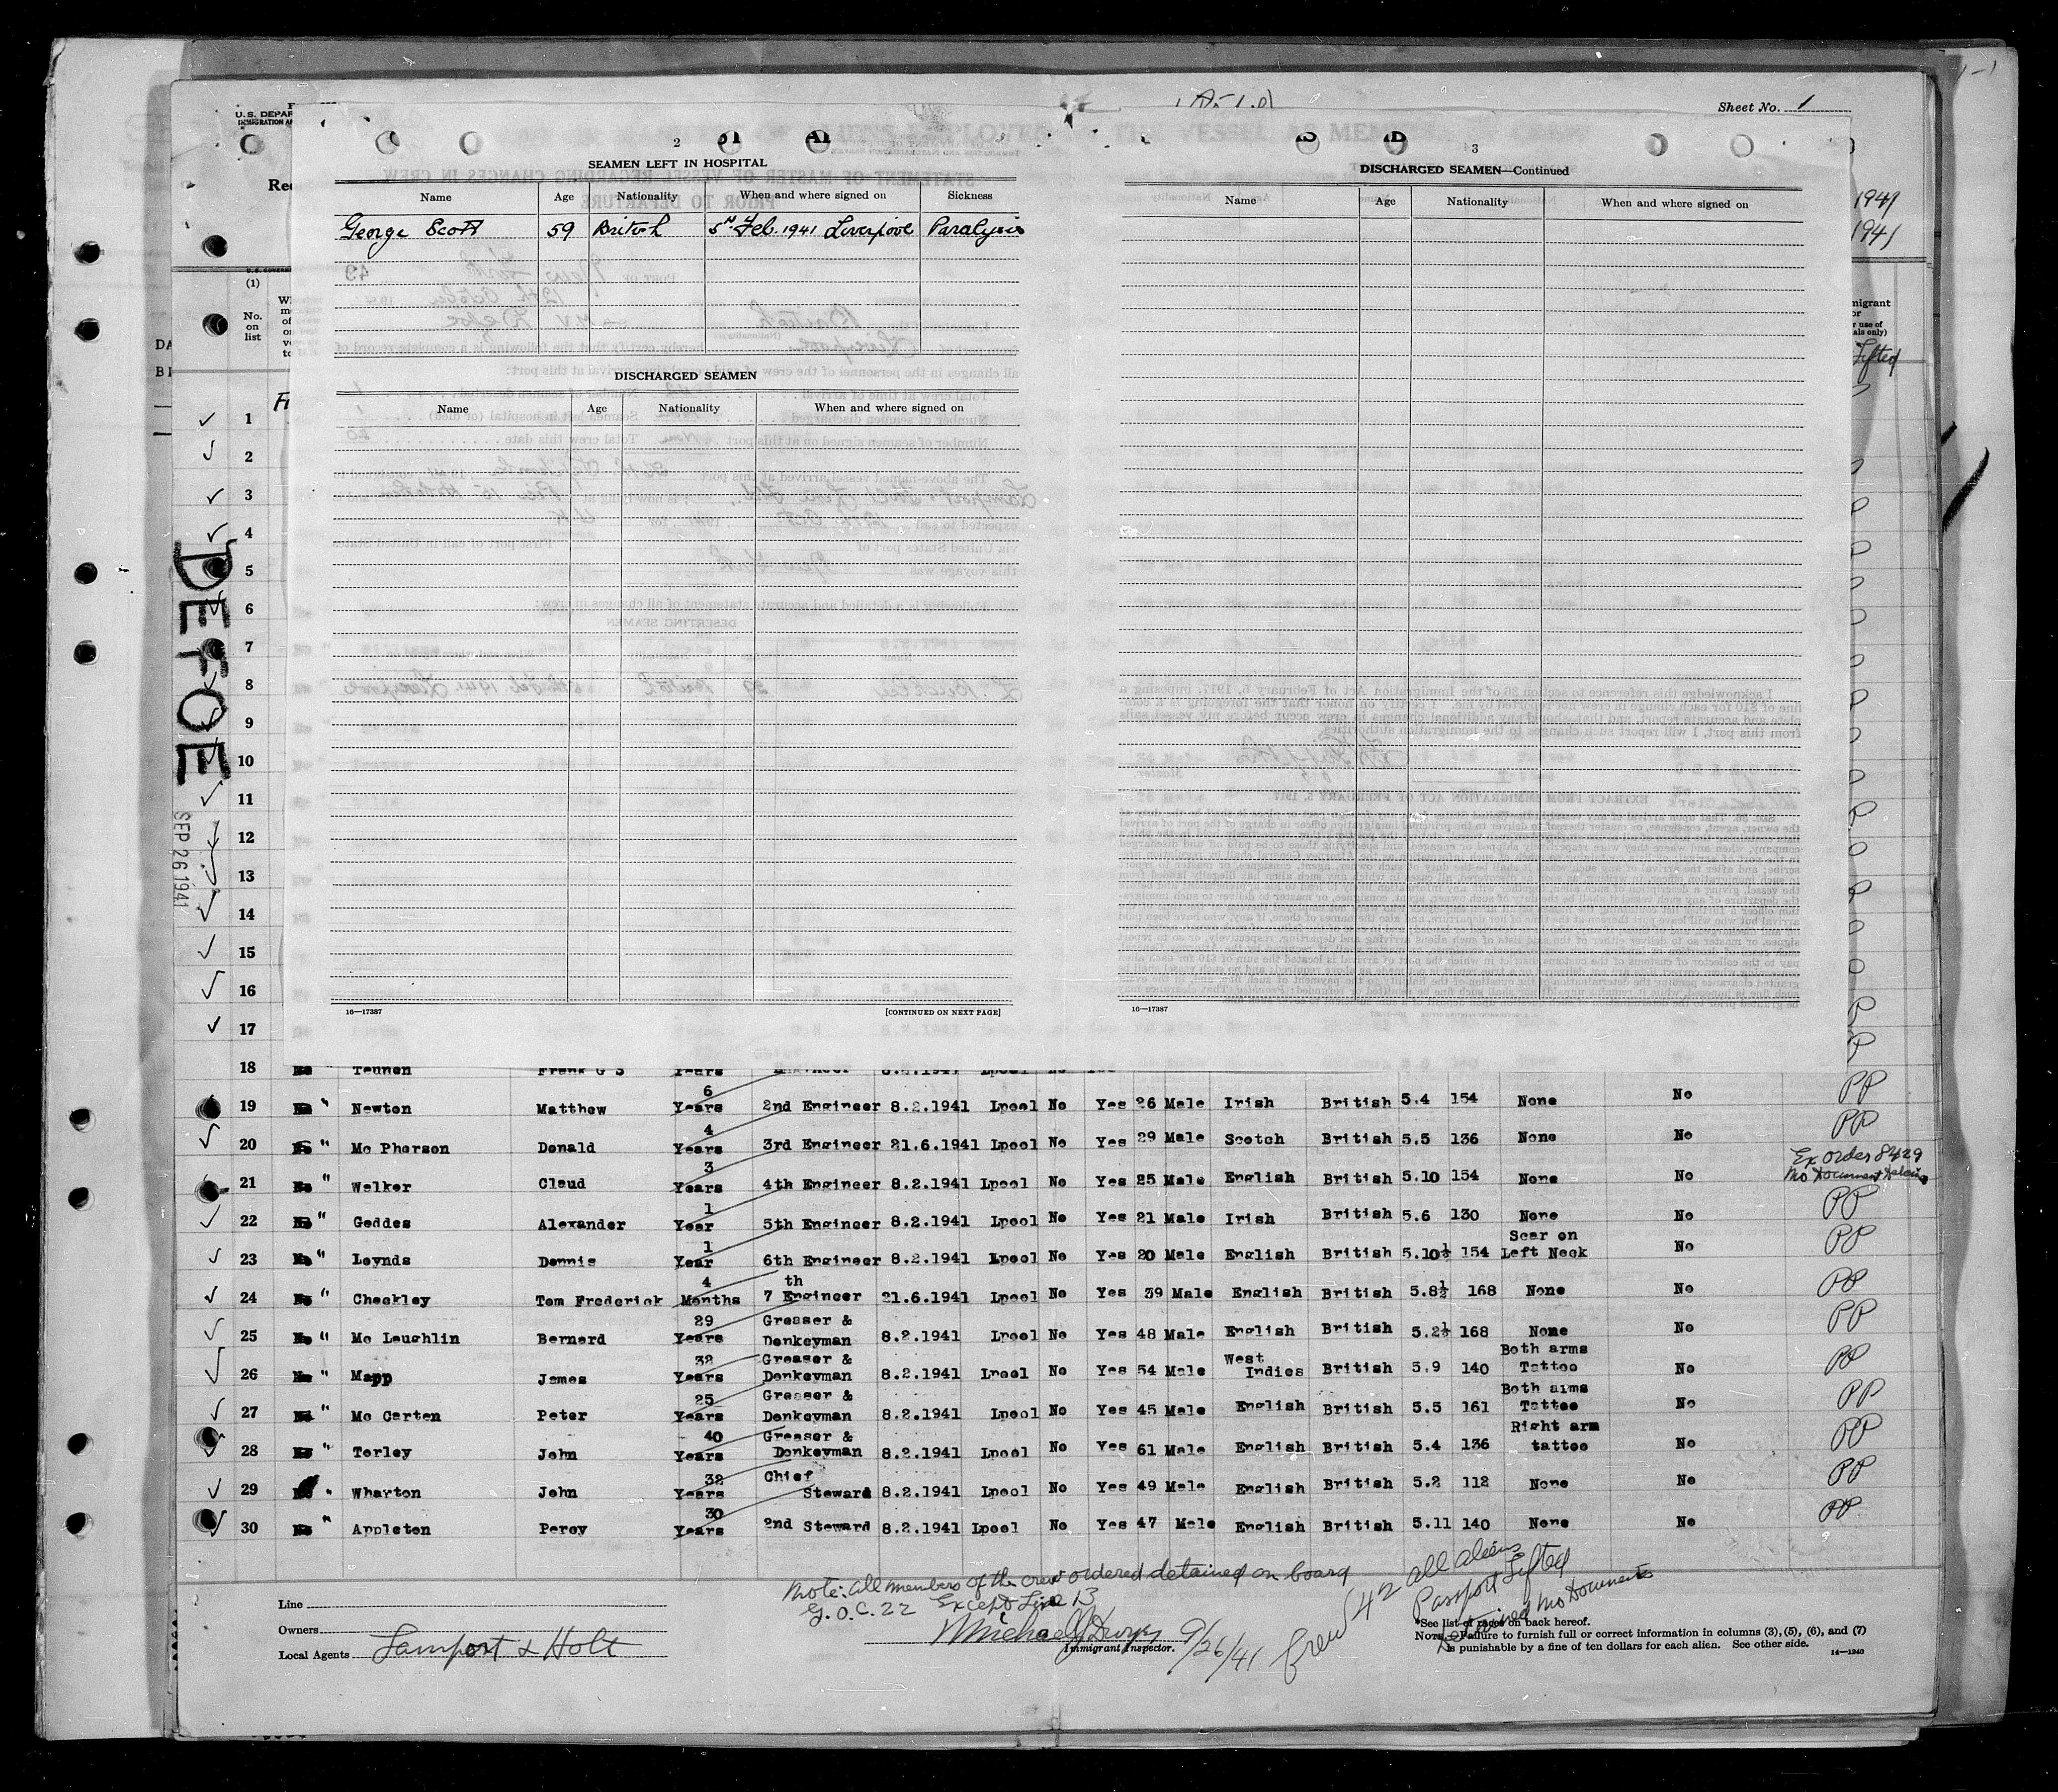 Sheet No. 1
U.S. DEPAR
IMMIGRATION A
2
SEAMEN LEFT IN HOSPITAL
Name Age Nationality When and where signed on Sickness
George Scott 59 British 5th Feb. 1941 Liverpool Paralysis
DISCHARGED SEAMEN
Name Age Nationality When and where signed on
16—17387 [CONTINUED ON NEXT PAGE]
3
DISCHARGED SEAMEN—Continued
Name Age Nationality When and where signed on
16—17387
1941
1941
(1)
No. on list
Lifted
DEFOE
SEP 26 1941
1
2
3
4
5
6
7
8
9
10
11
12
13
14
15
16
17
18 Frank G S Years
19 No " Newton Matthew 6 Years 2nd Engineer 8.2.1941 Lpool No Yes 26 Male Irish British 5.4 154 None No PP
20 No " Mc Pherson Donald 4 Years 3rd Engineer 21.6.1941 Lpool No Yes 29 Male Scotch British 5.5 136 None No PP
21 No " Walker Claud 3 Years 4th Engineer 8.2.1941 Lpool No Yes 25 Male English British 5.10 154 None No Ex Order 8429 No Document
22 No " Geddes Alexander 1 Year 5th Engineer 8.2.1941 Lpool No Yes 21 Male Irish British 5.6 130 None No PP
23 No " Leynds Dennis 1 Year 6th Engineer 8.2.1941 Lpool No Yes 20 Male English British 5.10½ 154 Scar on Left Neck No PP
24 No " Checkley Tom Frederick 4 Months 7th Engineer 21.6.1941 Lpool No Yes 39 Male English British 5.8½ 168 None No PP
25 No " Mc Laughlin Bernard 29 Years Greaser & Donkeyman 8.2.1941 Lpool No Yes 48 Male English British 5.2½ 168 None No PP
26 No " Mapp James 32 Years Greaser & Donkeyman 8.2.1941 Lpool No Yes 54 Male West Indies British 5.9 140 Both arms Tattoo No PP
27 No " Mc Carten Peter 25 Years Greaser & Donkeyman 8.2.1941 Lpool No Yes 45 Male English British 5.5 161 Both arms Tattoo No PP
28 No " Torley John 40 Years Greaser & Donkeyman 8.2.1941 Lpool No Yes 61 Male English British 5.4 136 Right arm tattoo No PP
29 No " Wharton John 32 Years Chief Steward 8.2.1941 Lpool No Yes 49 Male English British 5.2 112 None No PP
30 No " Appleton Percy 30 Years 2nd Steward 8.2.1941 Lpool No Yes 47 Male English British 5.11 140 None No PP
Note: all members of the crew ordered detained on board
G.O.C. 22 Except Line 13
9/26/41
Immigrant Inspector.
Crew 42 all aliens
Passport Lifted
Detained No Documents
Line
Owners
Local Agents Lamport & Holt
*See list of races on back hereof.
NOTE.—Failure to furnish full or correct information in columns (3), (5), (6), and (7)
is punishable by a fine of ten dollars for each alien. See other side.
14—1240